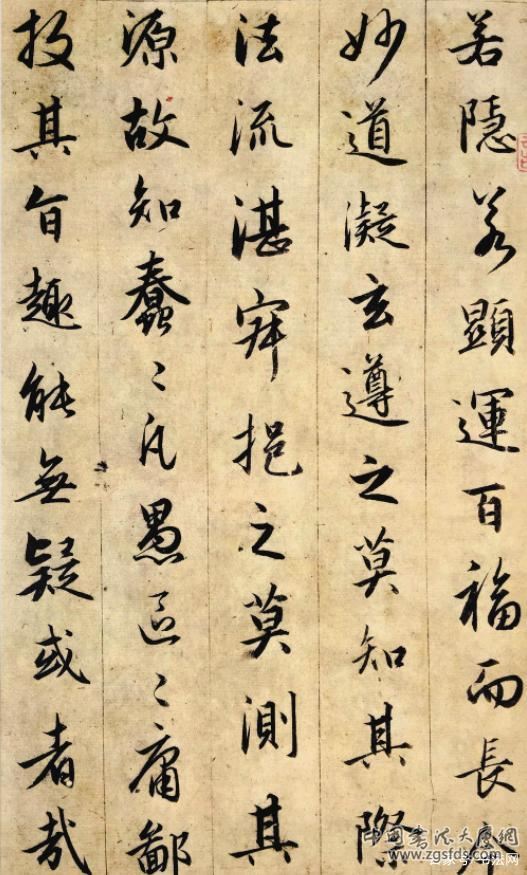 若隱若顯運百福而長今
妙道凝玄遵之莫知其際
法流湛寂挹之莫測其
源故知蠢〻凡愚區〻庸鄙
投其旨趣能無疑或者哉
www.zgsfds.com
百家号/书法网